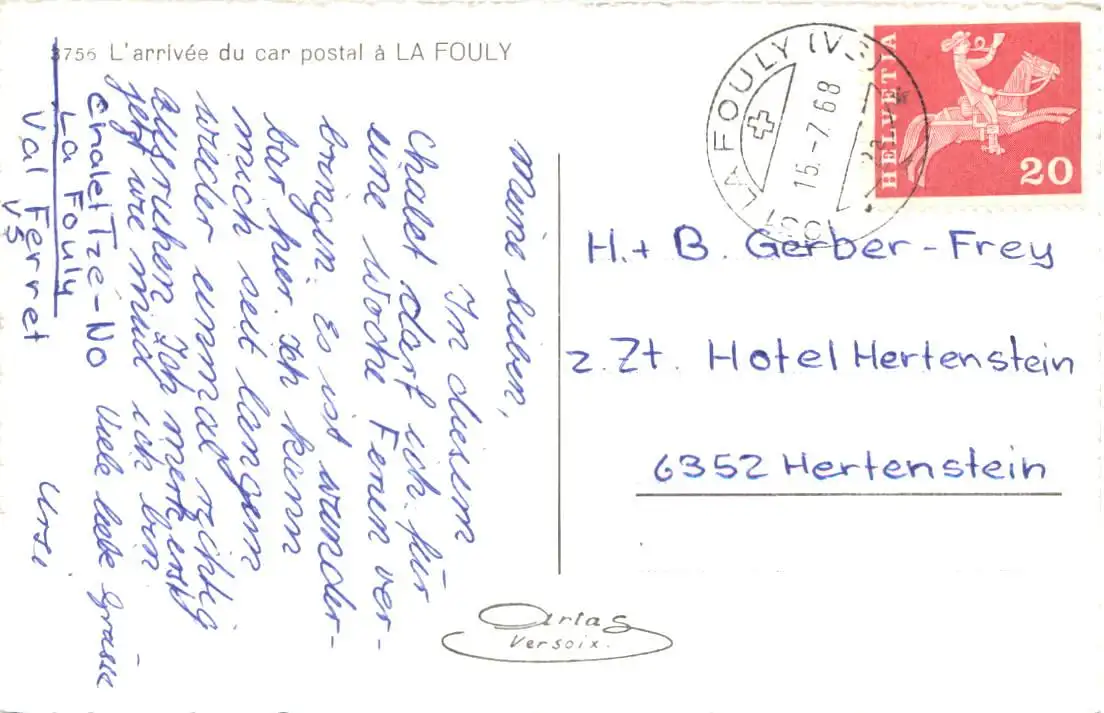 3756 L'arrivée du car postal à LA FOULY
Meine Lieben,
In diesem
Chalet darf ich für
eine Woche Ferien ver-
bringen. Es ist wunder-
bar hier. Ich kann
mich seit langem
wieder einmal richtig
ausruhen. Ich merke erst
jetzt wie müde ich bin
Viele liebe Grüsse
Ursi
Chalet Tzé-No
La Fouly
Val Ferret
VS
1931 LA FOULY (VS)
15.-7.68
HELVETIA
20
H.+ B. Gerber-Frey
z.Zt. Hotel Hertenstein
6352 Hertenstein
Artas
Versoix.